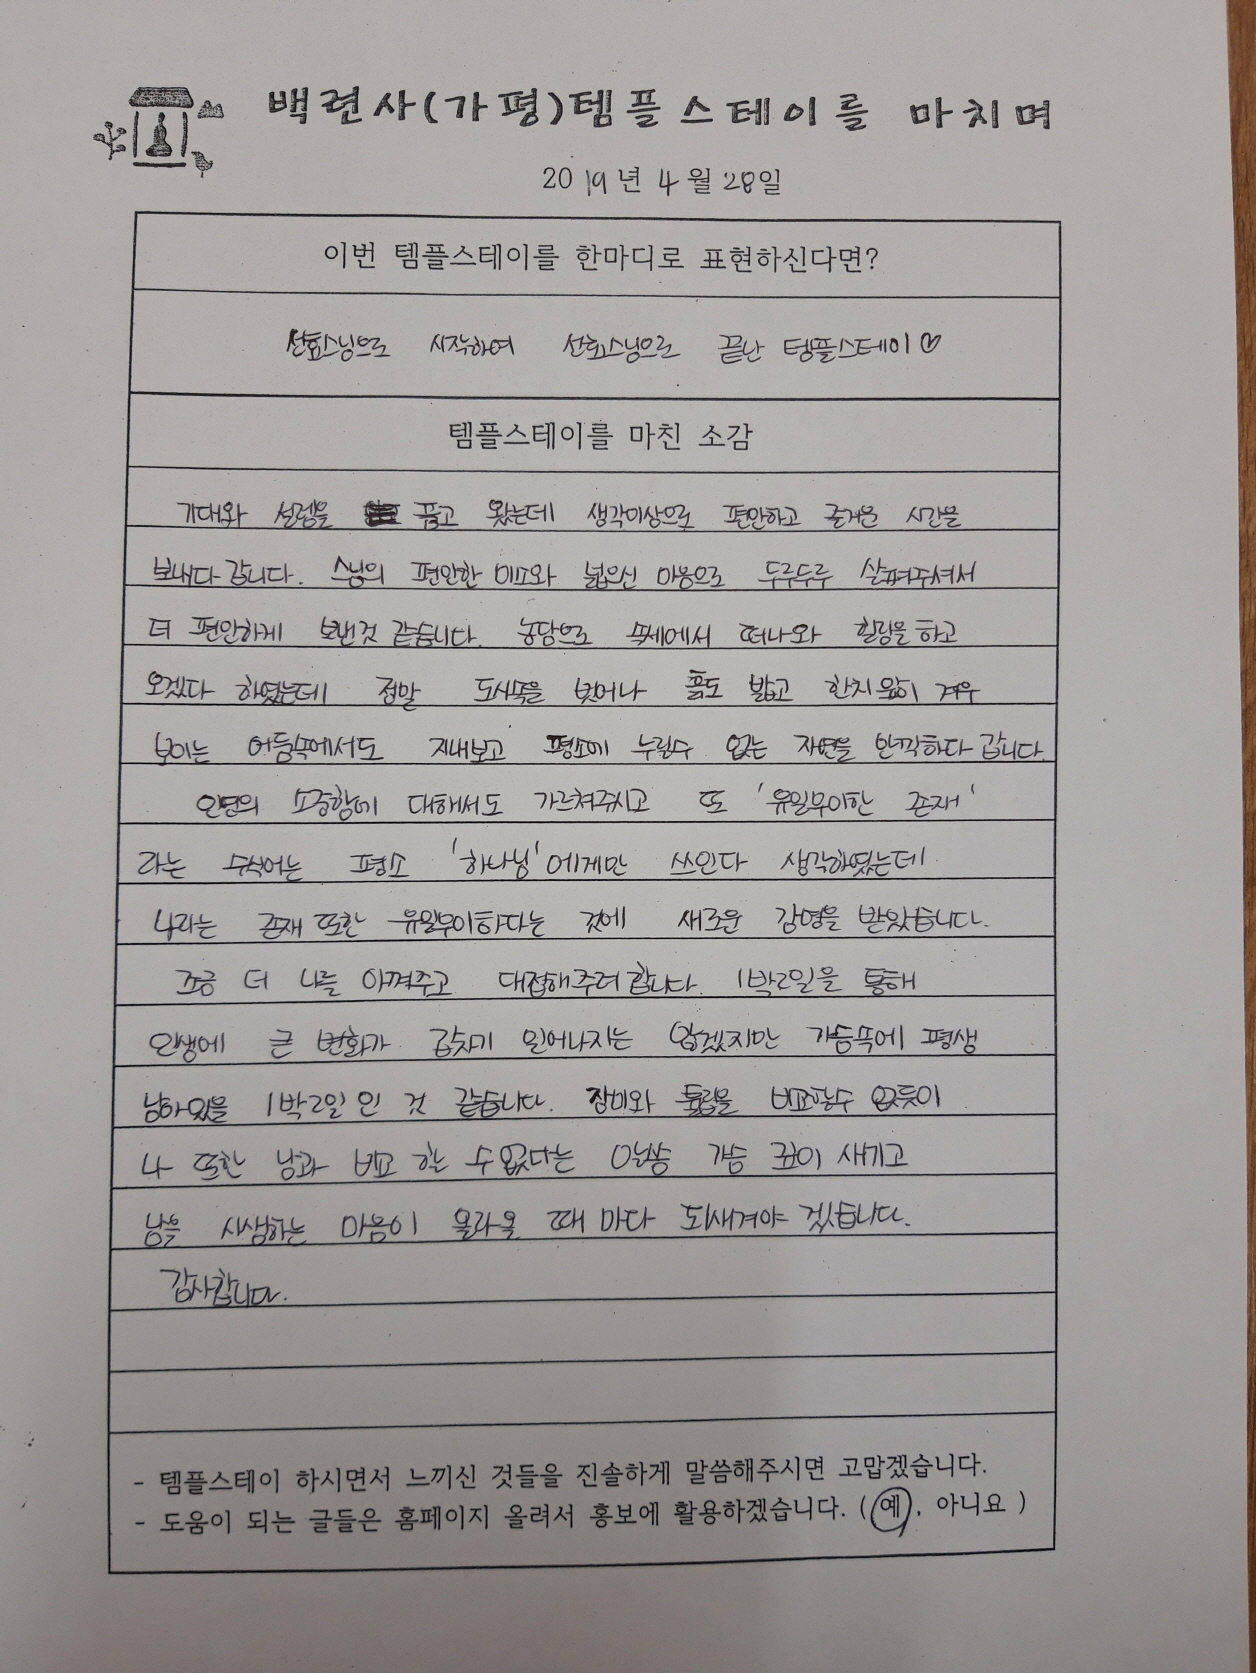 백련사(가평)템플스테이를 마치며
2019년 4월 28일
이번 템플스테이를 한마디로 표현하신다면?
선효스님으로 시작하여 선효스님으로 끝난 템플스테이♡
템플스테이를 마친 소감
기대와 설렘을 품고 왔는데 생각이상으로 편안하고 즐거운 시간을
보내다 갑니다. 스님의 편안한 미소와 넓으신 마음으로 두루두루 살펴주셔서
더 편안하게 보낸것 같습니다. 농담으로 속세에서 떠나와 힐링을 하고
오겠다 하였는데 정말 도시쪽을 벗어나 흙도 밟고 한치 앞이 겨우
보이는 어둠속에서도 지내보고 평소에 누릴수 없는 자연을 만끽하다 갑니다.
인연의 소중함에 대해서도 가르쳐주시고 또 '유일무이한 존재'
라는 수식어는 평소 '하나님'에게만 쓰인다 생각하였는데
나라는 존재 또한 유일무이하다는 것에 새로운 감명을 받았습니다.
조금 더 나를 아껴주고 대접해주려 합니다. 1박2일을 통해
인생에 큰 변화가 갑작기 일어나지는 않겠지만 가슴쪽에 평생
남아있을 1박2일 인 것 같습니다. 장미와 튤립을 비교할수 없듯이
나 또한 남과 비교 할 수 없다는 말씀 가슴 깊이 새기고
남을 시샘하는 마음이 올라올 때 마다 되새겨야 겠습니다.
감사합니다.
- 템플스테이 하시면서 느끼신 것들을 진솔하게 말씀해주시면 고맙겠습니다.
- 도움이 되는 글들은 홈페이지 올려서 홍보에 활용하겠습니다. ( 예, 아니요 )